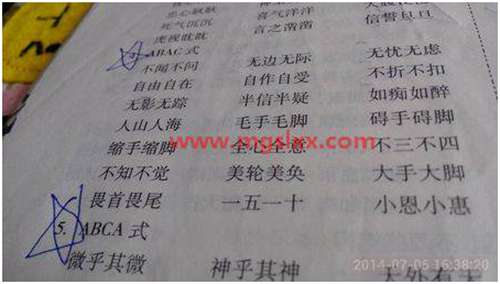 忠心耿耿 喜气洋洋
死气沉沉 言之凿凿 信誓旦旦
虎视眈眈
ABAC 式
不闻不问 无边无际 无忧无虑
自由自在 自作自受 不折不扣
无影无踪 半信半疑 如痴如醉
人山人海 毛手毛脚 碍手碍脚
www.mgslxx.com
缩手缩脚 全心全意 不三不四
不知不觉 美轮美奂 大手大脚
畏首畏尾 一五一十 小恩小惠
5. ABCA 式
微乎其微 神乎其神 天外有天
2014-07-05 16:38:20